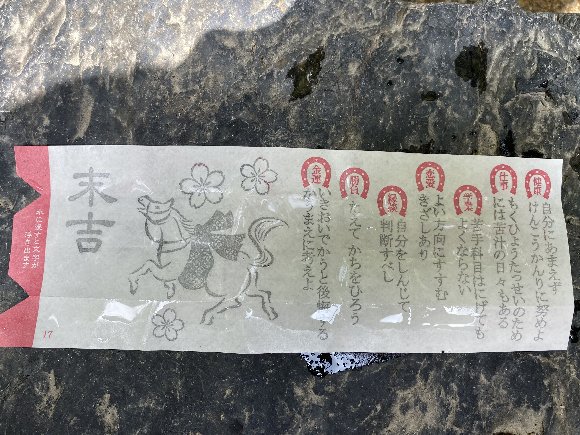 健康
自分にあまえず
けんこうかんりに努めよ
仕事
もくひょうたっせいのため
には苦汁の日々もある
学業
苦手科目はにげても
よくならない
恋愛
よい方向にすすむ
きざしあり
縁談
自分をしんじて
判断すべし
勝負
たえて かちをひろう
金運
いきおいでかうと後悔する
かうまえに考えよ
末吉
水に浸すと文字が
浮き出ます
17